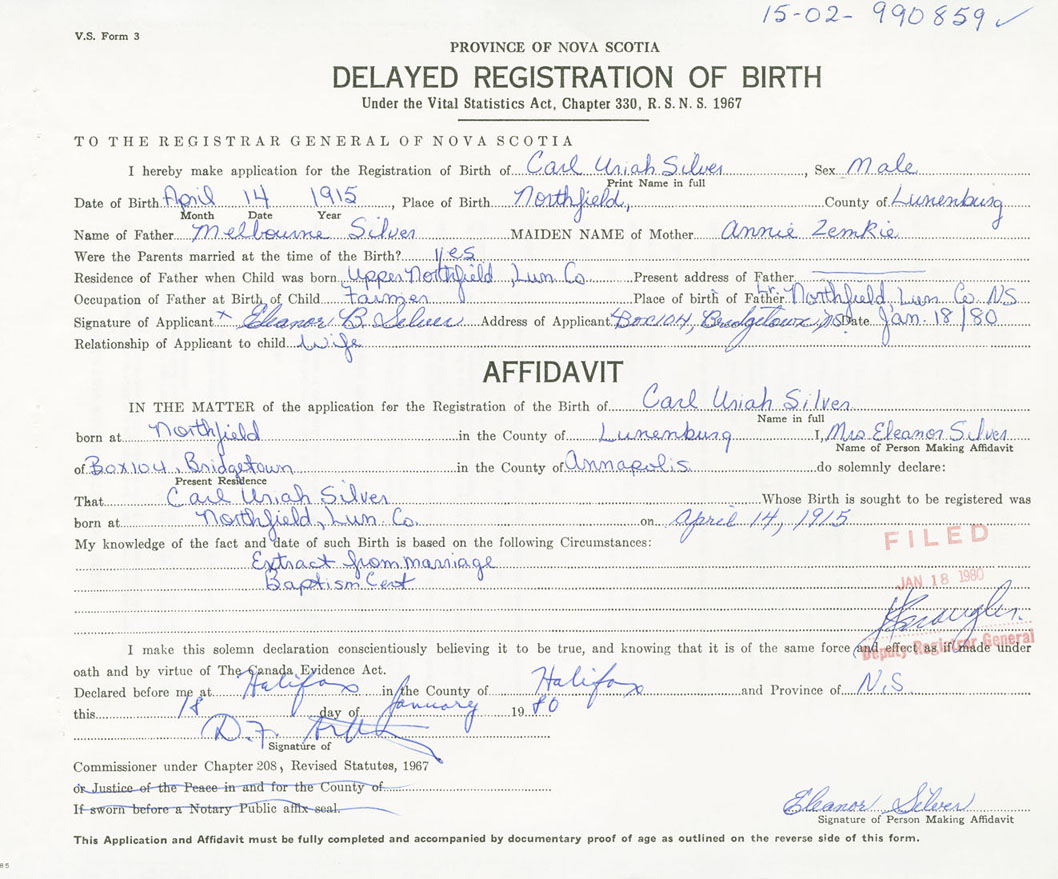 15-02- 990859 ✓
V.S. Form 3
PROVINCE OF NOVA SCOTIA
DELAYED REGISTRATION OF BIRTH
Under the Vital Statistics Act, Chapter 330, R. S. N. S. 1967
TO THE REGISTRAR GENERAL OF NOVA SCOTIA
I hereby make application for the Registration of Birth of Carl Uriah Silver, Sex Male
Print Name in full
Date of Birth April 14 1915, Place of Birth Northfield, County of Lunenburg
Month Date Year
Name of Father Melbourne Silver MAIDEN NAME of Mother Annie Zemkie
Were the Parents married at the time of the Birth? Yes
Residence of Father when Child was born Upper Northfield, Lun. Co. Present address of Father
Occupation of Father at Birth of Child Farmer Place of birth of Father Lr. Northfield, Lun Co. NS
Signature of Applicant x Eleanor B. Silver Address of Applicant Box 104, Bridgetown, NS Date Jan. 18/80
Relationship of Applicant to child Wife
AFFIDAVIT
IN THE MATTER of the application for the Registration of the Birth of Carl Uriah Silver
Name in full
born at Northfield in the County of Lunenburg I, Mrs. Eleanor Silver
Name of Person Making Affidavit
of Box 104, Bridgetown in the County of Annapolis do solemnly declare:
Present Residence
That Carl Uriah Silver Whose Birth is sought to be registered was
born at Northfield, Lun. Co. on April 14, 1915
My knowledge of the fact and date of such Birth is based on the following Circumstances:
Extract from marriage
Baptism Cert
FILED
JAN 18 1980
Deputy Registrar General
I make this solemn declaration conscientiously believing it to be true, and knowing that it is of the same force and effect as if made under
oath and by virtue of The Canada Evidence Act.
Declared before me at Halifax in the County of Halifax and Province of N.S.
this 18 day of January 19 80
D.F.
Signature of
Commissioner under Chapter 208, Revised Statutes, 1967
or Justice of the Peace in and for the County of
If sworn before a Notary Public affix seal.
Eleanor Silver
Signature of Person Making Affidavit
This Application and Affidavit must be fully completed and accompanied by documentary proof of age as outlined on the reverse side of this form.
85